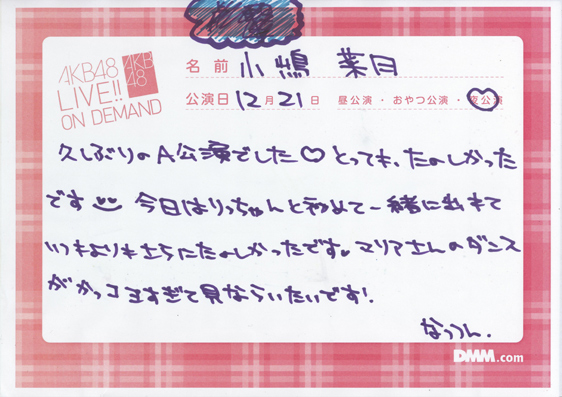 AKB48
LIVE!!
ON DEMAND
AKB
48
名前 小嶋 菜月
公演日 12月21日 昼公演・おやつ公演・夜公演
久しぶりのA公演でした♡とっても、たのしかった
です 今日はりっちゃんと初めて一緒に出れて
いつもよりもさらにたのしかったです。マリアさんのダンス
がかっコよすぎて見ならいたいです!
なっつん.
DMM.com